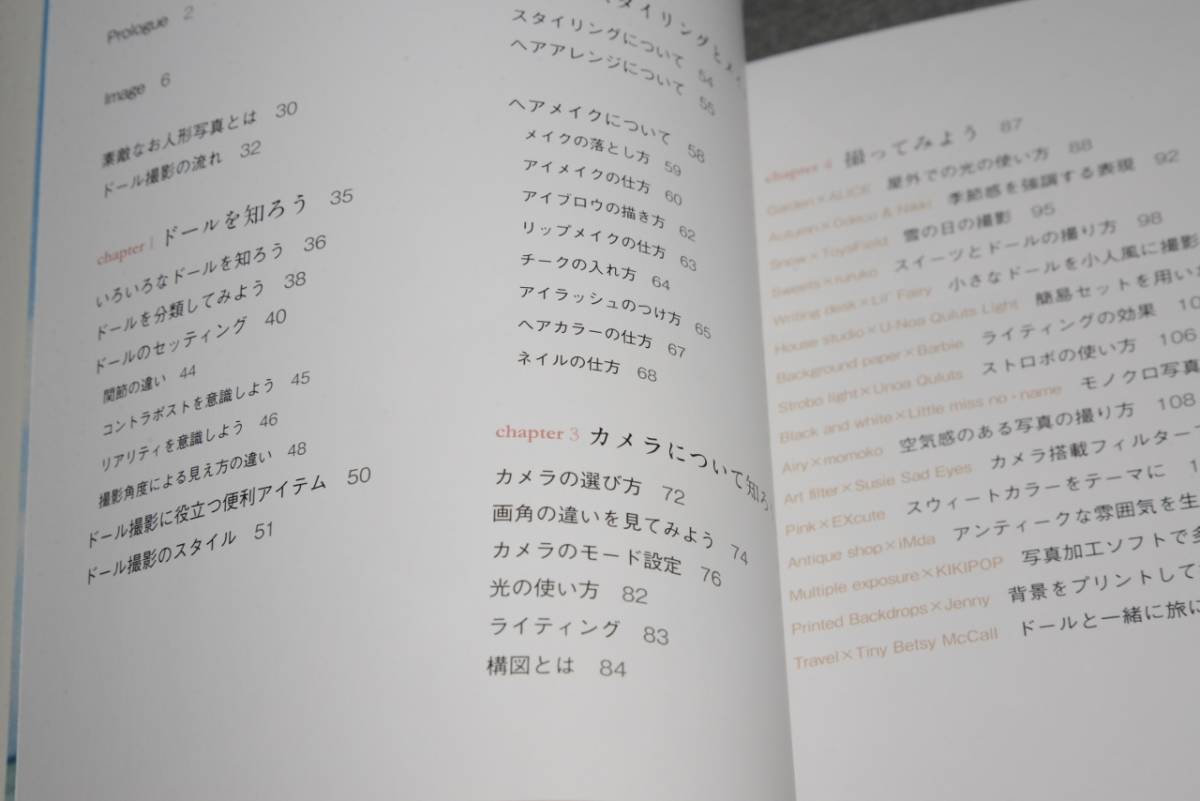 Prologue 2
Image 6
素敵なお人形写真とは 30
ドール撮影の流れ 32
chapter 1 ドールを知ろう 35
いろいろなドールを知ろう 36
ドールを分類してみよう 38
ドールのセッティング 40
関節の違い 44
コントラポストを意識しよう 45
リアリティを意識しよう 46
撮影角度による見え方の違い 48
ドール撮影に役立つ便利アイテム 50
ドール撮影のスタイル 51
タイリングとメイ
スタイリングについて 54
ヘアアレンジについて 55
ヘアメイクについて 58
メイクの落とし方 59
アイメイクの仕方 60
アイブロウの描き方 62
リップメイクの仕方 63
チークの入れ方 64
アイラッシュのつけ方 65
ヘアカラーの仕方 67
ネイルの仕方 68
chapter 3 カメラについて知ろ
カメラの選び方 72
画角の違いを見てみよう 74
カメラのモード設定 76
光の使い方 82
ライティング 83
構図とは 84
chapter 4 撮ってみよう 87
Garden×ALICE 屋外での光の使い方 88
Autumn×Odeco & Nikki 季節感を強調する表現 92
Snow×ToysField 雪の日の撮影 95
Sweets×ruruko スイーツとドールの撮り方 98
Writing desk×Lil' Fairy 小さなドールを小人風に撮影
House studio×U-Noa Quluts Light 簡易セットを用い
Background paper×Barbie ライティングの効果 10
Strobo light×Unoa Quluts ストロボの使い方 106
Black and white×Little miss no・name モノクロ写真
Airy×momoko 空気感のある写真の撮り方 108
Art filter×Susie Sad Eyes カメラ搭載フィルター
Pink×EXcute スウィートカラーをテーマに 1
Antique shop×iMda アンティークな雰囲気を生
Multiple exposure×KIKIPOP 写真加工ソフトで多
Printed Backdrops×Jenny 背景をプリントして
Travel×Tiny Betsy McCall ドールと一緒に旅に